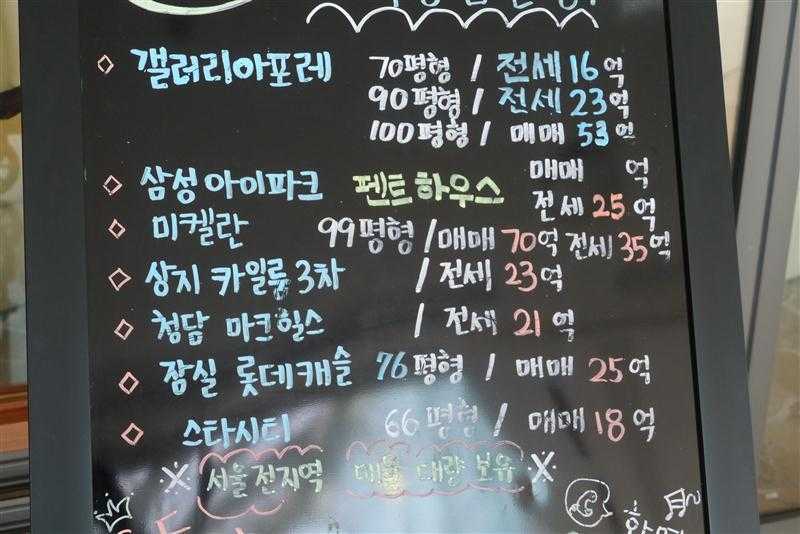 ◇ 갤러리아포레 70평형 / 전세 16억
90평형 / 전세 23억
100평형 / 매매 53억
◇ 삼성 아이파크 펜트하우스 매매 억
전세 25억
◇ 미켈란 99평형 / 매매 70억 전세 35억
◇ 상지 카일룸 3차 / 전세 23억
◇ 청담 마크힐스 / 전세 21억
◇ 잠실 롯데캐슬 76평형 / 매매 25억
◇ 스타시티 66평형 / 매매 18억
※ 서울 전지역 매물 대량 보유 ※